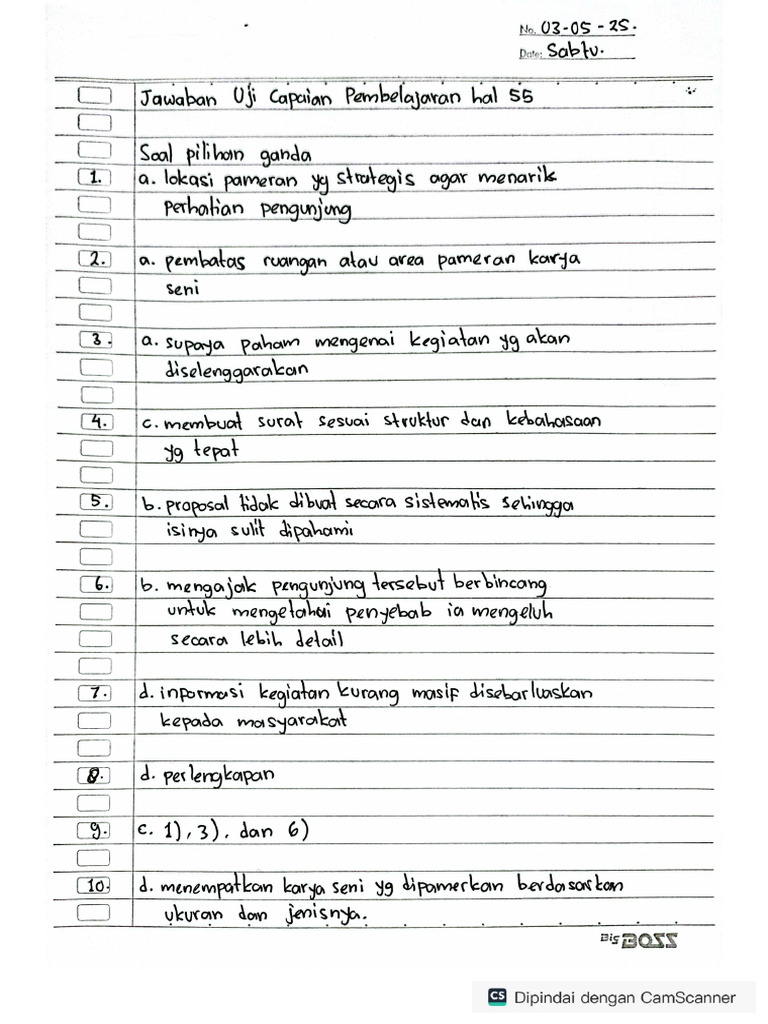 No. 03-05-25.
Date: Sabtu.
Jawaban Uji Capaian Pembelajaran hal 55
Soal pilihan ganda
1. a. lokasi pameran yg strategis agar menarik
perhatian pengunjung
2. a. pembatas ruangan atau area pameran karya
seni
3. a. supaya paham mengenai kegiatan yg akan
diselenggarakan
4. c. membuat surat sesuai struktur dan kebahasaan
yg tepat
5. b. proposal tidak dibuat secara sistematis sehingga
isinya sulit dipahami
6. b. mengajak pengunjung tersebut berbincang
untuk mengetahai penyebab ia mengeluh
secara lebih detail
7. d. informasi kegiatan kurang masif disebarluaskan
kepada masyarakat
8. d. perlengkapan
9. c. 1), 3), dan 6)
10. d. menempatkan karya seni yg dipamerkan berdasarkan
ukuran dan jenisnya.
Big BOSS
CS Dipindai dengan CamScanner